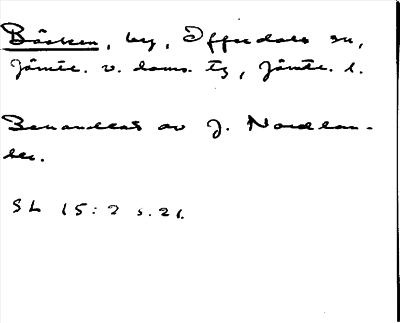 Bäcken, by, Offerdals sn,
Jämtl. v. doms. tg, Jämtl. l.
Behandlat av J. Nordlan-
der.
SL 15:2 s. 21.